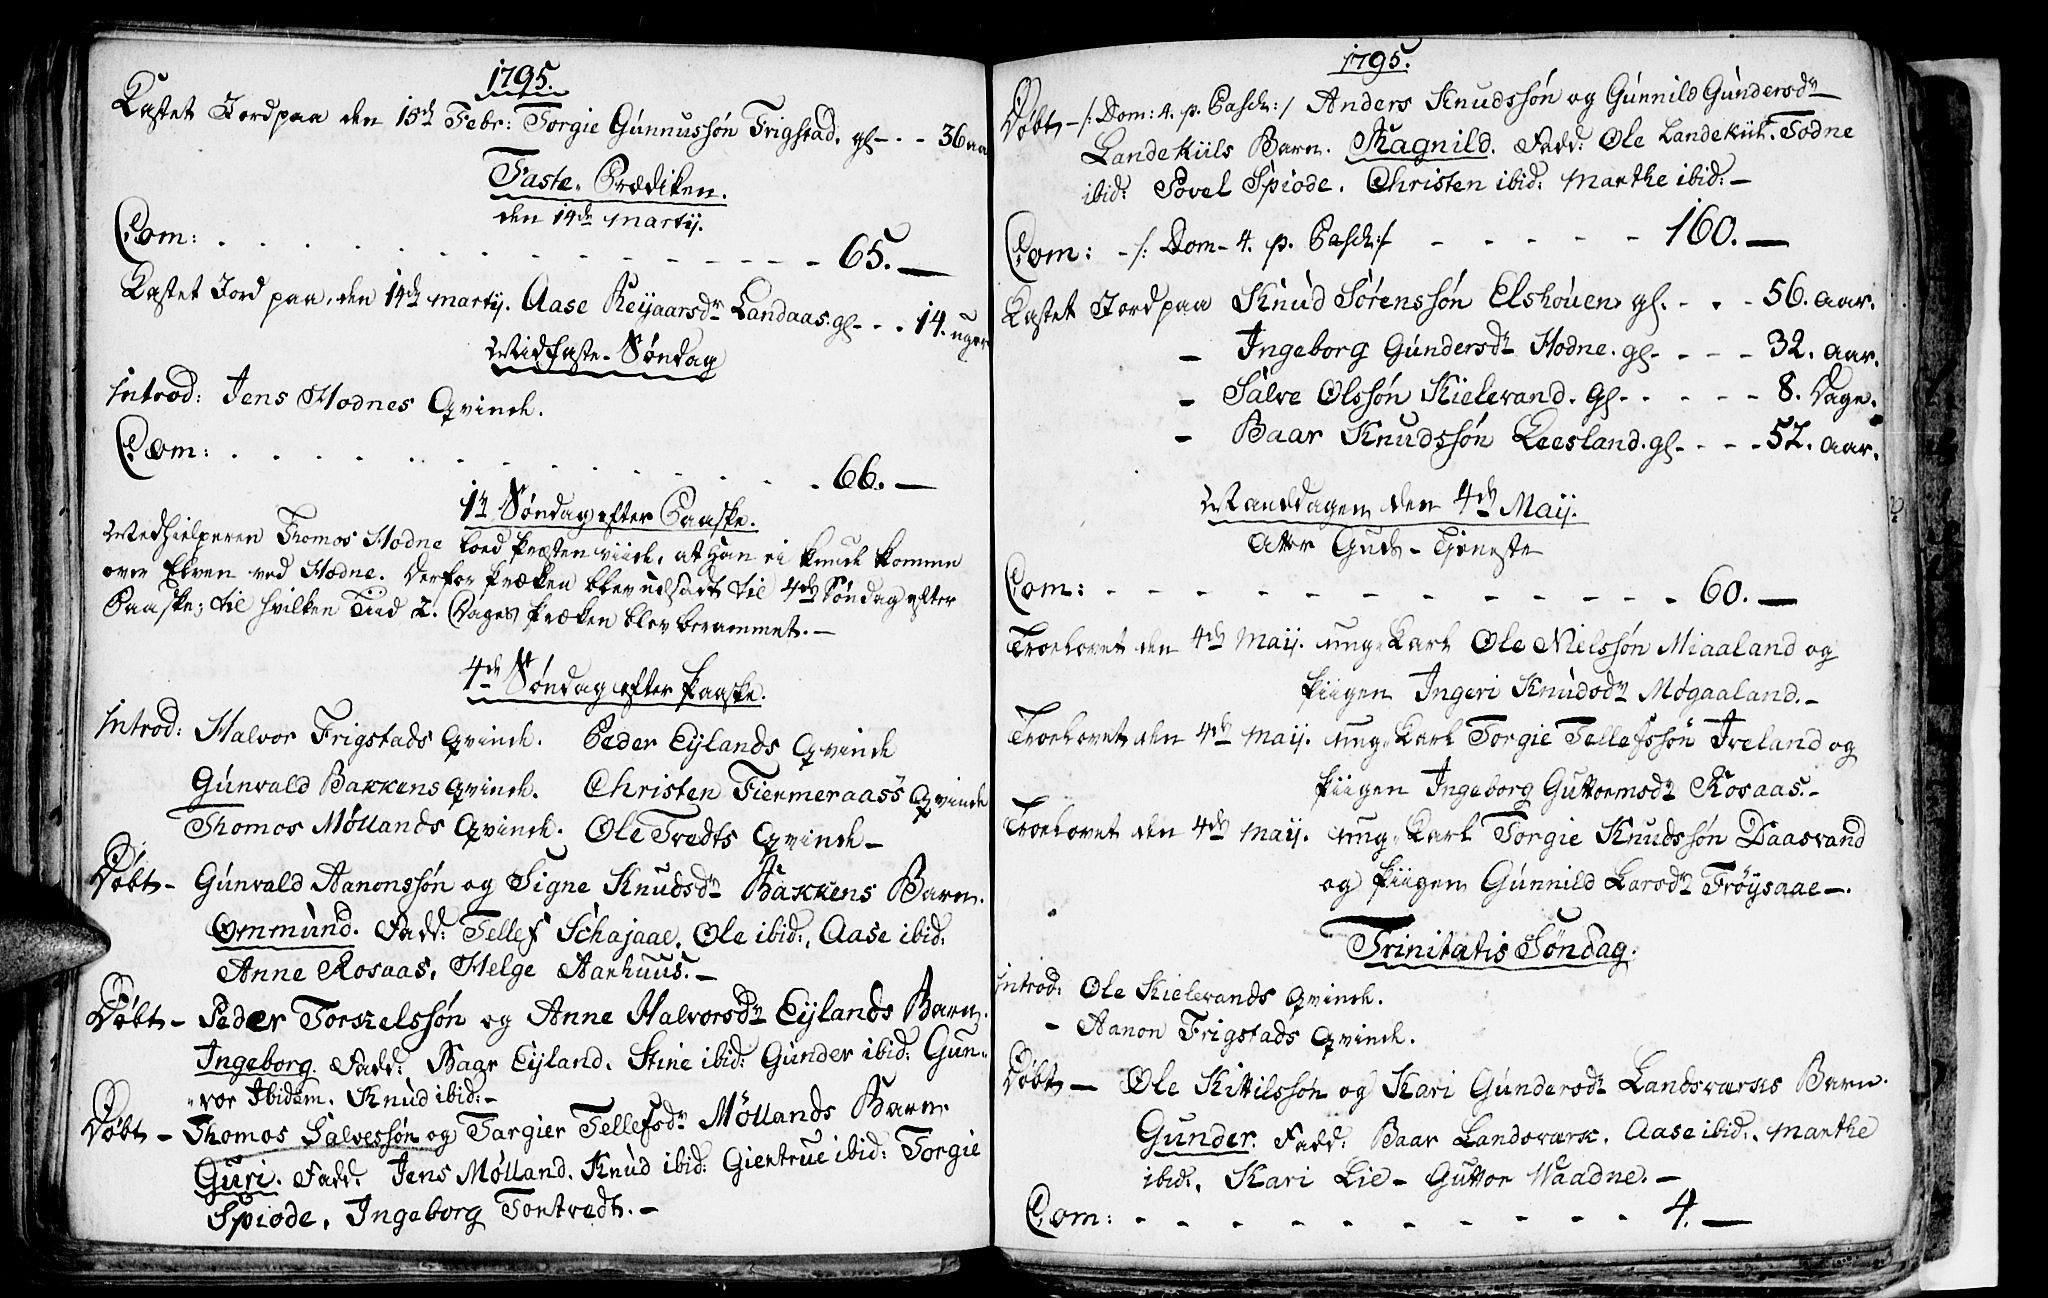 1795.
Kastet Jord paa den 15de Febr: Torgie Gunnussøn Frigstad. gl - - - 36 aa
Faste-Prædiken.
den 14de Martij.
Com: - - - - - - - - - - - - 65. —
Kastet Jord paa, den 14de Martij. Aase Reijaarsdr Landaas. gl - - - 14. uger
Midfaste-Søndag
Introd: Jens Hodnes Qvinde.
Com: - - - - - - - - - - - - 66. —
1te Søndag efter Paaske.
Medhielperen Thomos Hodne lod Præsten viide, at han ei kunde komme
over Elven ved Hodne. Derfor Præken blev udsadt til 4de Søndag efter
Paaske; til hvilken Tiid 2. Dages Præken blev berammet. —
4de Søndag efter Paaske.
Introd: Halvor Frigstads Qvinde. Peder Eijlands Qvinde
Gunvald Bakkens Qvinde. Christen Fiermeraass Qvinde
Thomos Møllands Qvinde. Ole Tvedts Qvinde —
Døbt - Gunvald Aanonssøn og Signe Knudsdr Bakkens Barn.
Ommund. Fadd: Tellef Schajaae, Ole ibid:, Aase ibid:
Anne Rosaas, Helge Aarhuus. —
Døbt - Peder Torkelssøn og Anne Halvorsdr Eijlands Barn.
Ingeborg. Fadd: Baar Eijland. Stine ibid: Gunder ibid: Gun-
-vor Ibidem. Knud ibid: -
Døbt - Thomos Salvessøn og Targier Tellefsdr Møllands Barn
Guri. Fadd: Jens Mølland. Knud ibid: Giertrue ibid: Torgie
Spiode, Ingeborg Tortvedt. —
1795.
Døbt - /: Dom: 4. p. Pasch: / Anders Knudssøn og Gunnild Gundersdr
Landekiils Barn. Ragnild. Fadd: Ole Landekiil. Todne
ibid: Povel Spiode. Christen ibid: Marthe ibid: —
Com: - /: Dom - 4. p. Pasch: / - - - - - 160. —
Kastet Jord paa Knud Sørenssøn Elshouen gl. - - - 56. aar.
- Ingeborg Gundersdr Hodne. gl - - - - 32. aar.
- Salve Olssøn Kielevand. gl - - - - - 8. Dage.
- Baar Knudssøn Leesland. gl - - - - 52. aar.
Manddagen den 4de Maij.
Atter Guds-Tjeneste
Com: - - - - - - - - - - - 60. —
Troelovet den 4de Maij. ung-Karl Ole Nielssøn Miaaland og
Piigen Ingeri Knudsdr Møgaaland. -
Troelovet den 4de Maij. ung-Karl Torgie Tellefssøn Ireland og
Piigen Ingeborg Guttormsdr Rosaas. -
Troelovet den 4de Maij. ung-Karl Torgie Knudssøn Daasvand
og Piigen Gunnild Larsdr Frøijsaae —.
Trinitatis Søndag.
Introd: Ole Kielevands Qvinde.
- Aanon Frigstads Qvinde.
Døbt — Ole Kittilssøn og Kari Gundersdr Landsværks Barn.
Gunder. Fadd: Baar Landsværk. Aase ibid:. Marthe
ibid:, Kari Lie - Guttor Waadne. —
Com: - - - - - - - - - - - 4. —